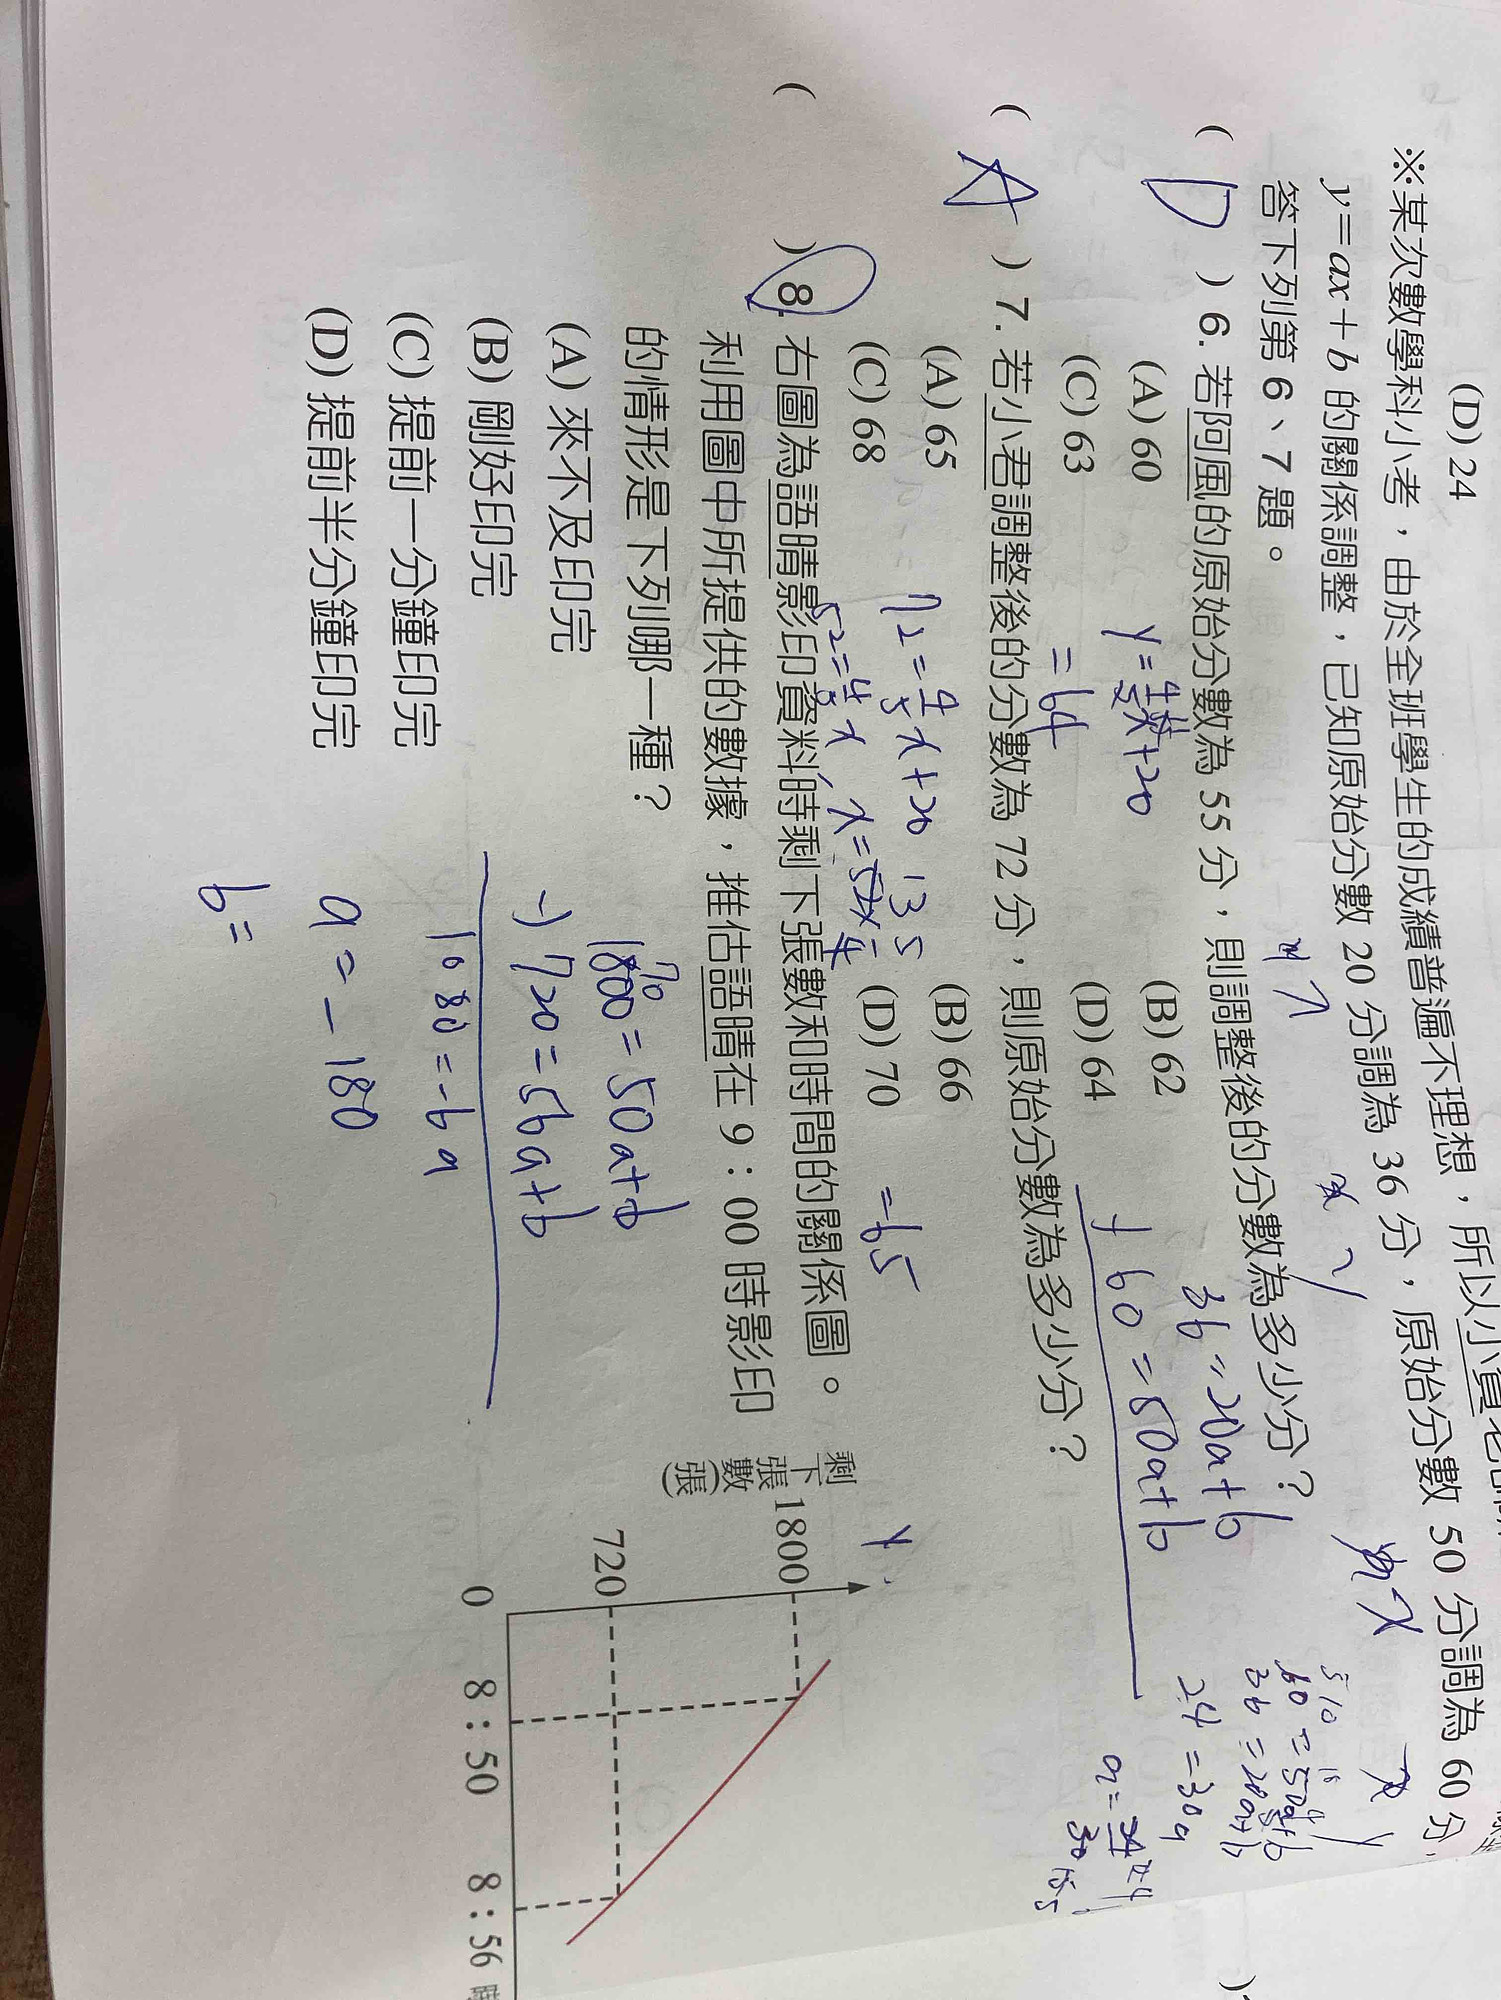 (D) 24
※某次數學科小考，由於全班學生的成績普遍不理想，所以小賀老
y=ax+b 的關係調整，已知原始分數 20 分調為 36 分，原始分數 50 分調為 60 分，
答下列第 6、7 題。
( D ) 6. 若阿風的原始分數為 55 分，則調整後的分數為多少分？
(A) 60 (B) 62
(C) 63 (D) 64
y=4/5x+20
=64
36=20a+b
60=50a+b
60=50a+b
36=20a+b
24=30a
( A ) 7. 若小君調整後的分數為 72 分，則原始分數為多少分？
(A) 65 (B) 66
(C) 68 (D) 70
72=4/5x+20
52=4/5x, x=52x5/4
=65
( ) 8. 右圖為語晴影印資料時剩下張數和時間的關係圖。
利用圖中所提供的數據，推估語晴在 9：00 時影印
的情形是下列哪一種？
(A) 來不及印完
(B) 剛好印完
(C) 提前一分鐘印完
(D) 提前半分鐘印完
1800=50a+b
-) 720=56a+b
1080=-6a
a=-180
b=
剩下張數(張)
y
1800
720
0
8：50
8：56